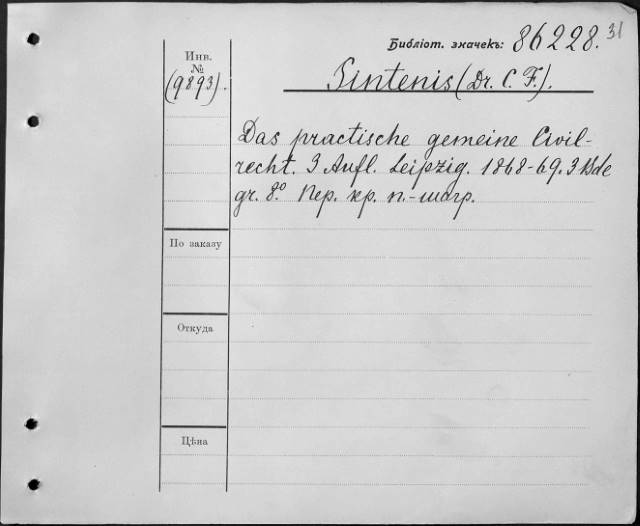 31
Библіот. значекъ: 86228.
Инв.
№
(9893).
Sintenis (Dr. C. F.).
Das practische gemeine Civil-
recht. 3 Aufl. Leipzig. 1868-69. 3 Bde
gr. 8.° Пер. кр. п.-шагр.
По заказу
Откуда
Цѣна